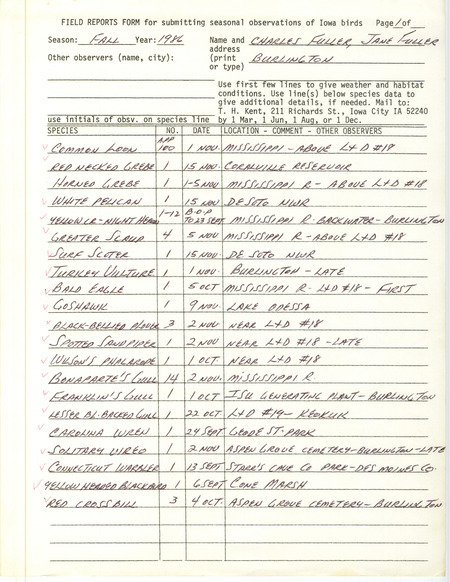 FIELD REPORTS FORM for submitting seasonal observations of Iowa birds Page 1 of
Season: FALL Year: 1986 Name and CHARLES FULLER, JANE FULLER
address
Other observers (name, city): (print BURLINGTON
or type)
Use first few lines to give weather and habitat
conditions. Use line(s) below species data to
give additional details, if needed. Mail to:
T. H. Kent, 211 Richards St., Iowa City IA 52240
use initials of obsv. on species line by 1 Mar, 1 Jun, 1 Aug, or 1 Dec.
SPECIES NO. DATE LOCATION - COMMENT - OTHER OBSERVERS
COMMON LOON APP 100 1 NOV. MISSISSIPPI - ABOVE L+D #18
RED NECKED GREBE 1 15 NOV. CORALVILLE RESERVOIR
HORNED GREBE 1 1-5 NOV MISSISSIPPI R - ABOVE L+D #18
WHITE PELICAN 1 15 NOV DE SOTO NWR
YELLOW CR. NIGHT HERON 1-12 B.O.P. TO 23 SEPT. MISSISSIPPI R. BACKWATER - BURLINGTON
GREATER SCAUP 4 5 NOV MISSISSIPPI R - ABOVE L+D #18
SURF SCOTER 1 15 NOV. DE SOTO NWR
TURKEY VULTURE 1 1 NOV. BURLINGTON - LATE
BALD EAGLE 1 5 OCT MISSISSIPPI R - L+D #18 - FIRST
GOSHAWK 1 9 NOV. LAKE ODESSA
BLACK-BELLIED PLOVER 3 2 NOV NEAR L+D #18
SPOTTED SANDPIPER 1 2 NOV NEAR L+D #18 - LATE
WILSON'S PHALAROPE 1 1 OCT. NEAR L+D #18
BONAPARTE'S GULL 14 2 NOV. MISSISSIPPI R.
FRANKLIN'S GULL 1 1 OCT ISU GENERATING PLANT - BURLINGTON
LESSER BL. BACKED GULL 1 22 OCT L+D #19 - KEOKUK
CAROLINA WREN 1 24 SEPT. GEODE ST. PARK
SOLITARY VIREO 1 2 NOV ASPEN GROVE CEMETERY - BURLINGTON - LATE
CONNECTICUT WARBLER 1 13 SEPT STARR'S CAVE CO PARK - DES MOINES CO.
YELLOW HEADED BLACKBIRD 1 6 SEPT CONE MARSH
RED CROSSBILL 3 4 OCT. ASPEN GROVE CEMETERY - BURLINGTON